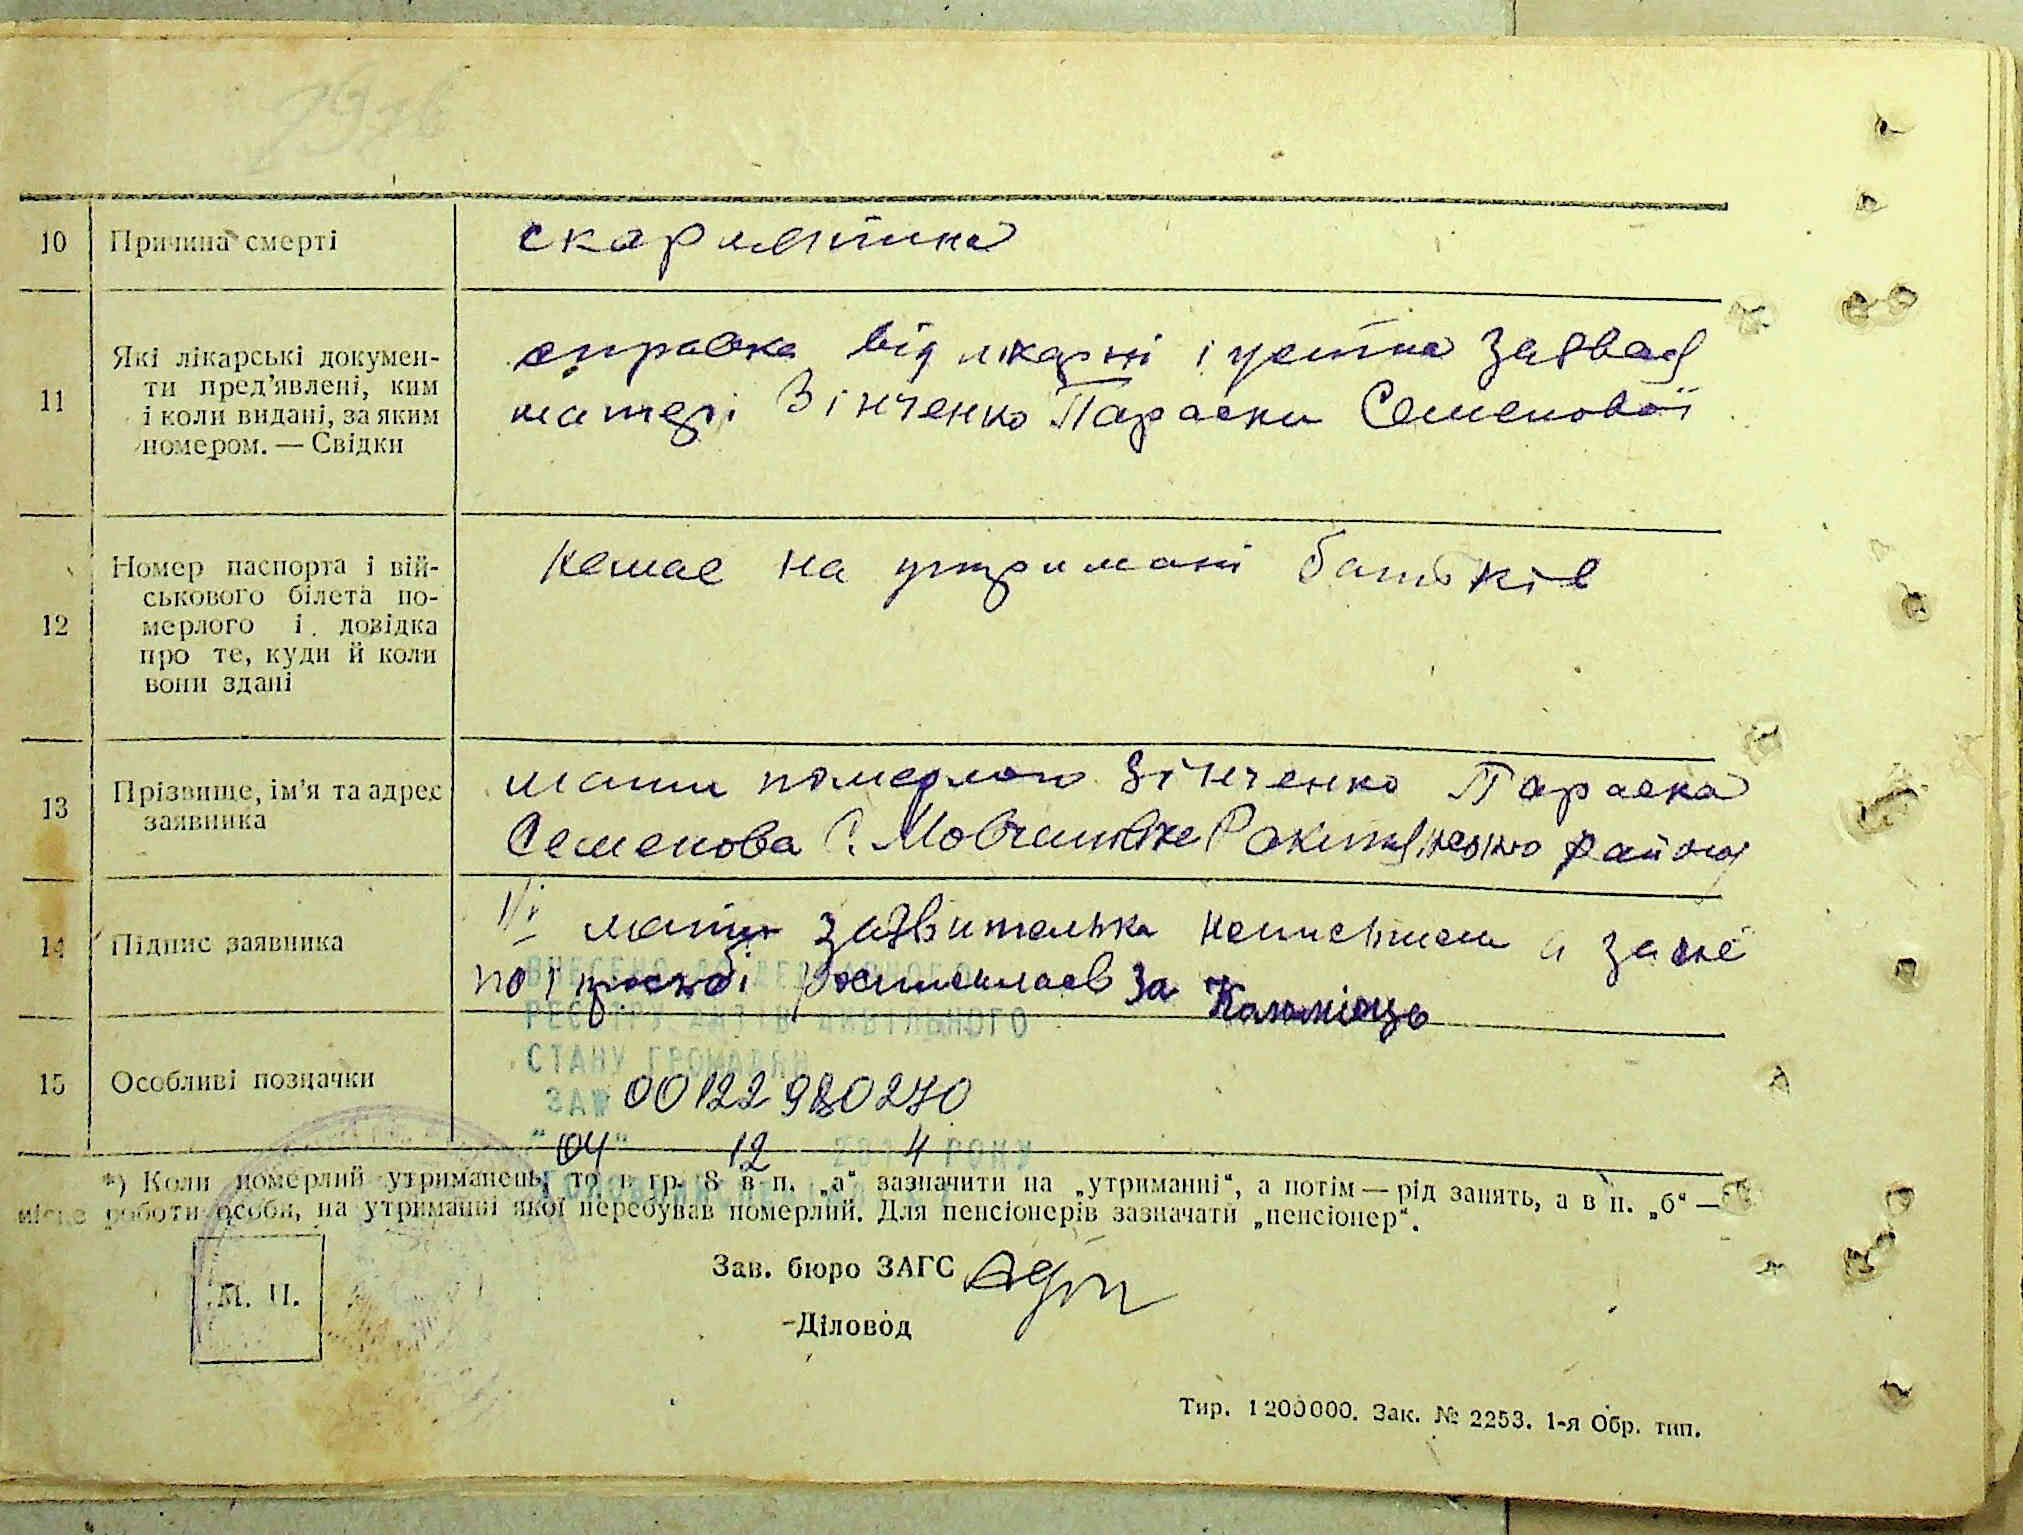 10 Причина смерті скарлятина
11 Які лікарські докумен-
ти пред'явлені, ким
і коли видані, за яким
номером. — Свідки
справка від лікарні і устна заява
матері Зінченко Параски Семенової
12 Номер паспорта і вій-
ськового білета по-
мерлого і довідка
про те, куди й коли
вони здані
немає на утримані батьків
13 Прізвище, ім'я та адрес
заявника
мати померлого Зінченко Параска
Семенова С. Ракитянського району
14 Підпис заявника
мати заявителька неписьмена а за неї
по і просьбі розписался за
ВНЕСЕНО ДО ДЕРЖАВНОГО
РЕЄСТРУ АКТІВ ЦИВІЛЬНОГО
СТАНУ ГРОМАДЯН
15 Особливі позначки
ЗА№ 00122980270
"04" 12 2014 РОКУ
*) Коли померлий утриманець, то в гр. 8 в п. „а“ зазначити на „утриманні“, а потім — рід занять, а в п. „б“ —
місце роботи особи, на утриманні якої перебував померлий. Для пенсіонерів зазначати „пенсіонер“.
М. П.
Зав. бюро ЗАГС
Діловод
Тир. 1200000. Зак. № 2253. 1-я Обр. тип.